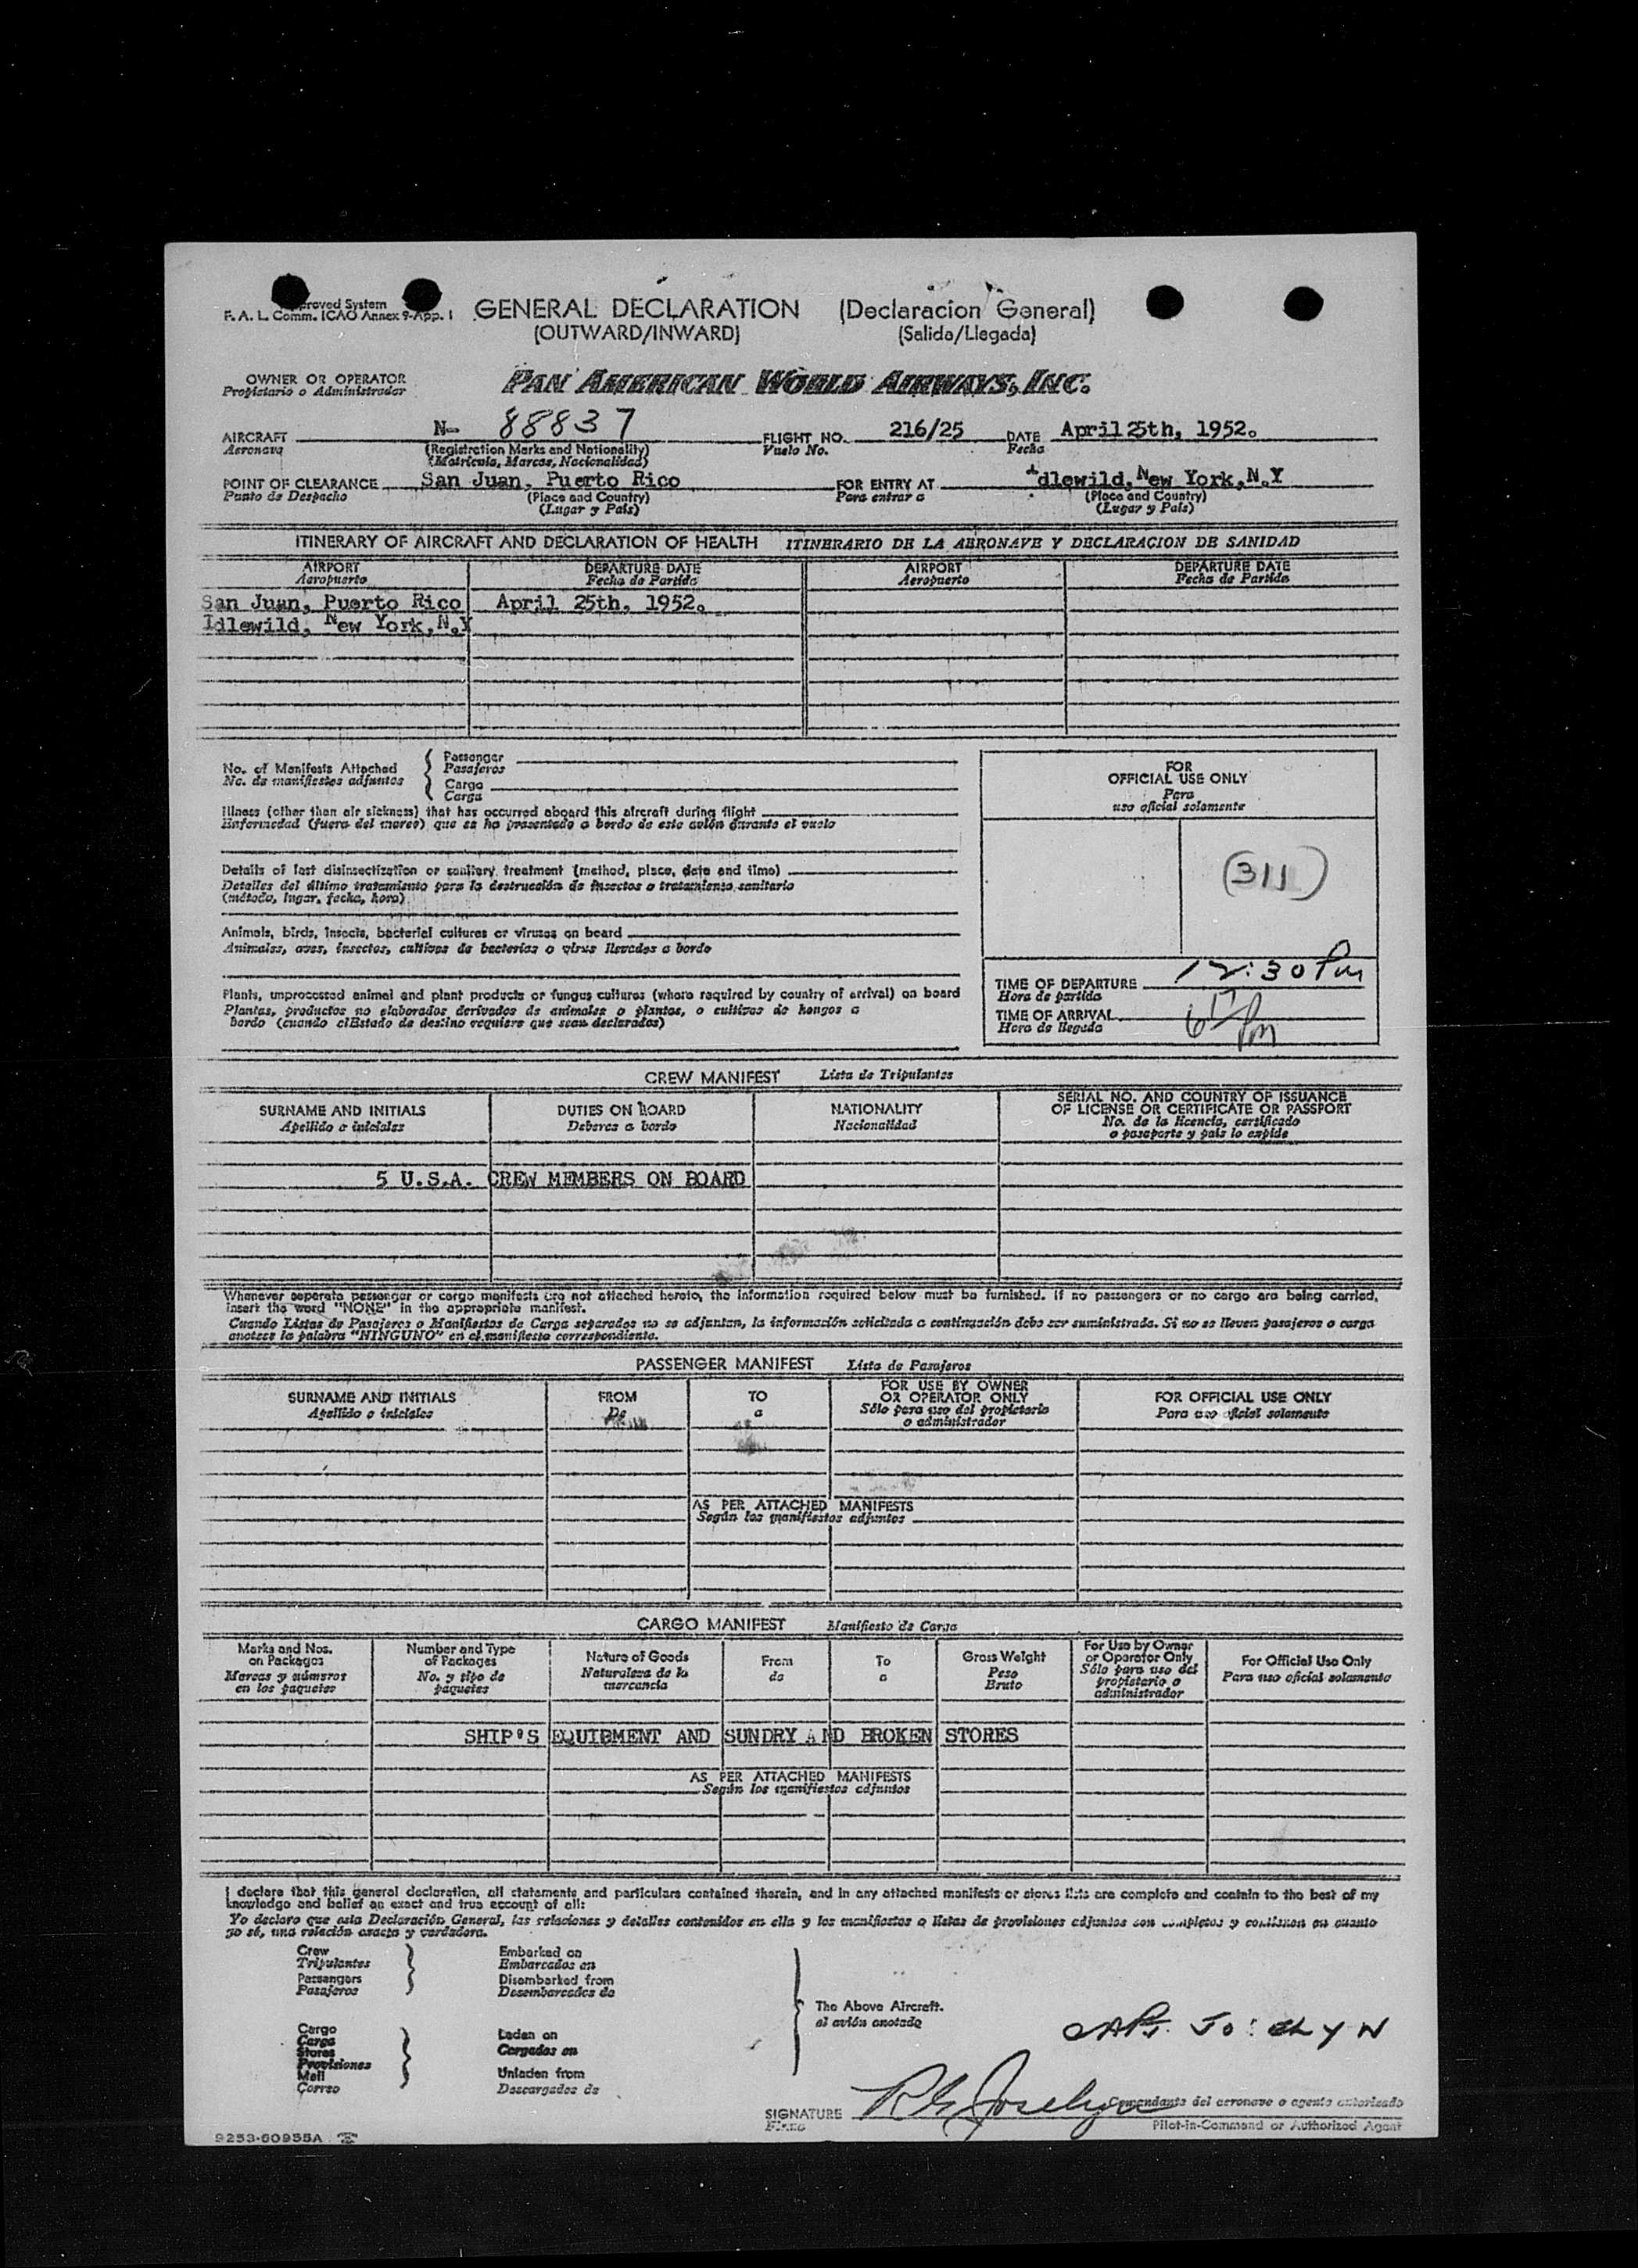 Approved System
F. A. L. Comm. ICAO Annex 9-App. 1
GENERAL DECLARATION (Declaracion General)
(OUTWARD/INWARD) (Salida/Llegada)
OWNER OR OPERATOR
Propietario o Administrador
PAN AMERICAN WORLD AIRWAYS, INC.
AIRCRAFT N- 88837 FLIGHT NO. 216/25 DATE April 25th, 1952.
Aeronave (Registration Marks and Nationality) Vuelo No. Fecha
(Matrícula, Marcas, Nacionalidad)
POINT OF CLEARANCE San Juan, Puerto Rico FOR ENTRY AT Idlewild, New York, N.Y
Punto de Despacho (Place and Country) Para entrar a (Place and Country)
(Lugar y País) (Lugar y País)
ITINERARY OF AIRCRAFT AND DECLARATION OF HEALTH ITINERARIO DE LA AERONAVE Y DECLARACION DE SANIDAD
AIRPORT DEPARTURE DATE AIRPORT DEPARTURE DATE
Aeropuerto Fecha de Partida Aeropuerto Fecha de Partida
San Juan, Puerto Rico April 25th, 1952.
Idlewild, New York, N.Y
No. of Manifests Attached
No. de manifiestos adjuntos
Passenger
Pasajeros
Cargo
Carga
Illness (other than air sickness) that has occurred aboard this aircraft during flight
Enfermedad (fuera del mareo) que se ha presentado a bordo de este avión durante el vuelo
Details of last disinsectization or sanitary treatment (method, place, date and time)
Detalles del último tratamiento para la destrucción de insectos o tratamiento sanitario
(método, lugar, fecha, hora)
Animals, birds, insects, bacterial cultures or viruses on board
Animales, aves, insectos, cultivos de bacterias o virus llevados a bordo
Plants, unprocessed animal and plant products or fungus cultures (where required by country of arrival) on board
Plantas, productos no elaborados derivados de animales o plantas, o cultivos de hongos a
bordo (cuando elEstado de destino requiere que sean declarados)
FOR
OFFICIAL USE ONLY
Para
uso oficial solamente
(311)
TIME OF DEPARTURE 12:30 Pm
Hora de partida
TIME OF ARRIVAL 6 17 Pm
Hora de llegada
CREW MANIFEST Lista de Tripulantes
SURNAME AND INITIALS DUTIES ON BOARD NATIONALITY SERIAL NO. AND COUNTRY OF ISSUANCE
OF LICENSE OR CERTIFICATE OR PASSPORT
Apellido o iniciales Deberes a bordo Nacionalidad No. de la licencia, certificado
o pasaporte y país lo expide
5 U.S.A. CREW MEMBERS ON BOARD
Whenever separate passenger or cargo manifests are not attached hereto, the information required below must be furnished. If no passengers or no cargo are being carried,
insert the word "NONE" in the appropriate manifest.
Cuando Listas de Pasajeros o Manifiestos de Carga separados no se adjuntan, la información solicitada a continuación debe ser suministrada. Si no se lleven pasajeros o carga
anotese la palabra "NINGUNO" en el manifiesto correspondiente.
PASSENGER MANIFEST Lista de Pasajeros
SURNAME AND INITIALS FROM TO FOR USE BY OWNER
OR OPERATOR ONLY FOR OFFICIAL USE ONLY
Apellido o iniciales De a Sólo para uso del propietario
o administrador Para uso oficial solamente
AS PER ATTACHED MANIFESTS
Según los manifiestos adjuntos
CARGO MANIFEST Manifiesto de Carga
Marks and Nos.
on Packages
Marcas y números
en los paquetes
Number and Type
of Packages
No. y tipo de
paquetes
Nature of Goods
Naturaleza de la
mercancía
From
de
To
a
Gross Weight
Peso
Bruto
For Use by Owner
or Operator Only
Sólo para uso del
propietario o
administrador
For Official Use Only
Para uso oficial solamente
SHIP'S EQUIPMENT AND SUNDRY AND BROKEN STORES
AS PER ATTACHED MANIFESTS
Según los manifiestos adjuntos
I declare that this general declaration, all statements and particulars contained therein, and in any attached manifests or stores lists are complete and contain to the best of my
knowledge and belief an exact and true account of all:
Yo declaro que esta Declaración General, las relaciones y detalles contenidos en ella y los manifiestos o listas de provisiones adjuntos son completos y contienen en cuanto
yo sé, una relación exacta y verdadera.
Crew
Tripulantes
Passengers
Pasajeros
Embarked on
Embarcados en
Disembarked from
Desembarcados de
Cargo
Carga
Stores
Provisiones
Mail
Correo
Laden on
Cargados en
Unladen from
Descargados de
The Above Aircraft.
al avión anotado
CAPT. JOSELYN
SIGNATURE R G Joselyn Comandante del aeronave o agente autorizado
Firma Pilot-in-Command or Authorized Agent
9253-60955A